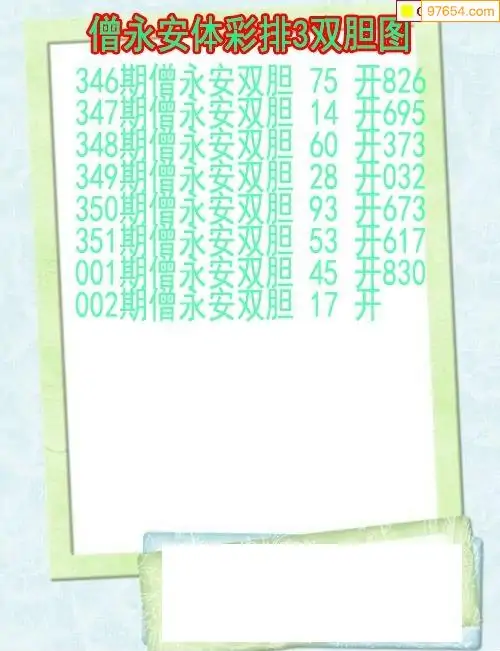 97654.com
僧永安体彩排3双胆图
346期僧永安双胆 75 开826
347期僧永安双胆 14 开695
348期僧永安双胆 60 开373
349期僧永安双胆 28 开032
350期僧永安双胆 93 开673
351期僧永安双胆 53 开617
001期僧永安双胆 45 开830
002期僧永安双胆 17 开